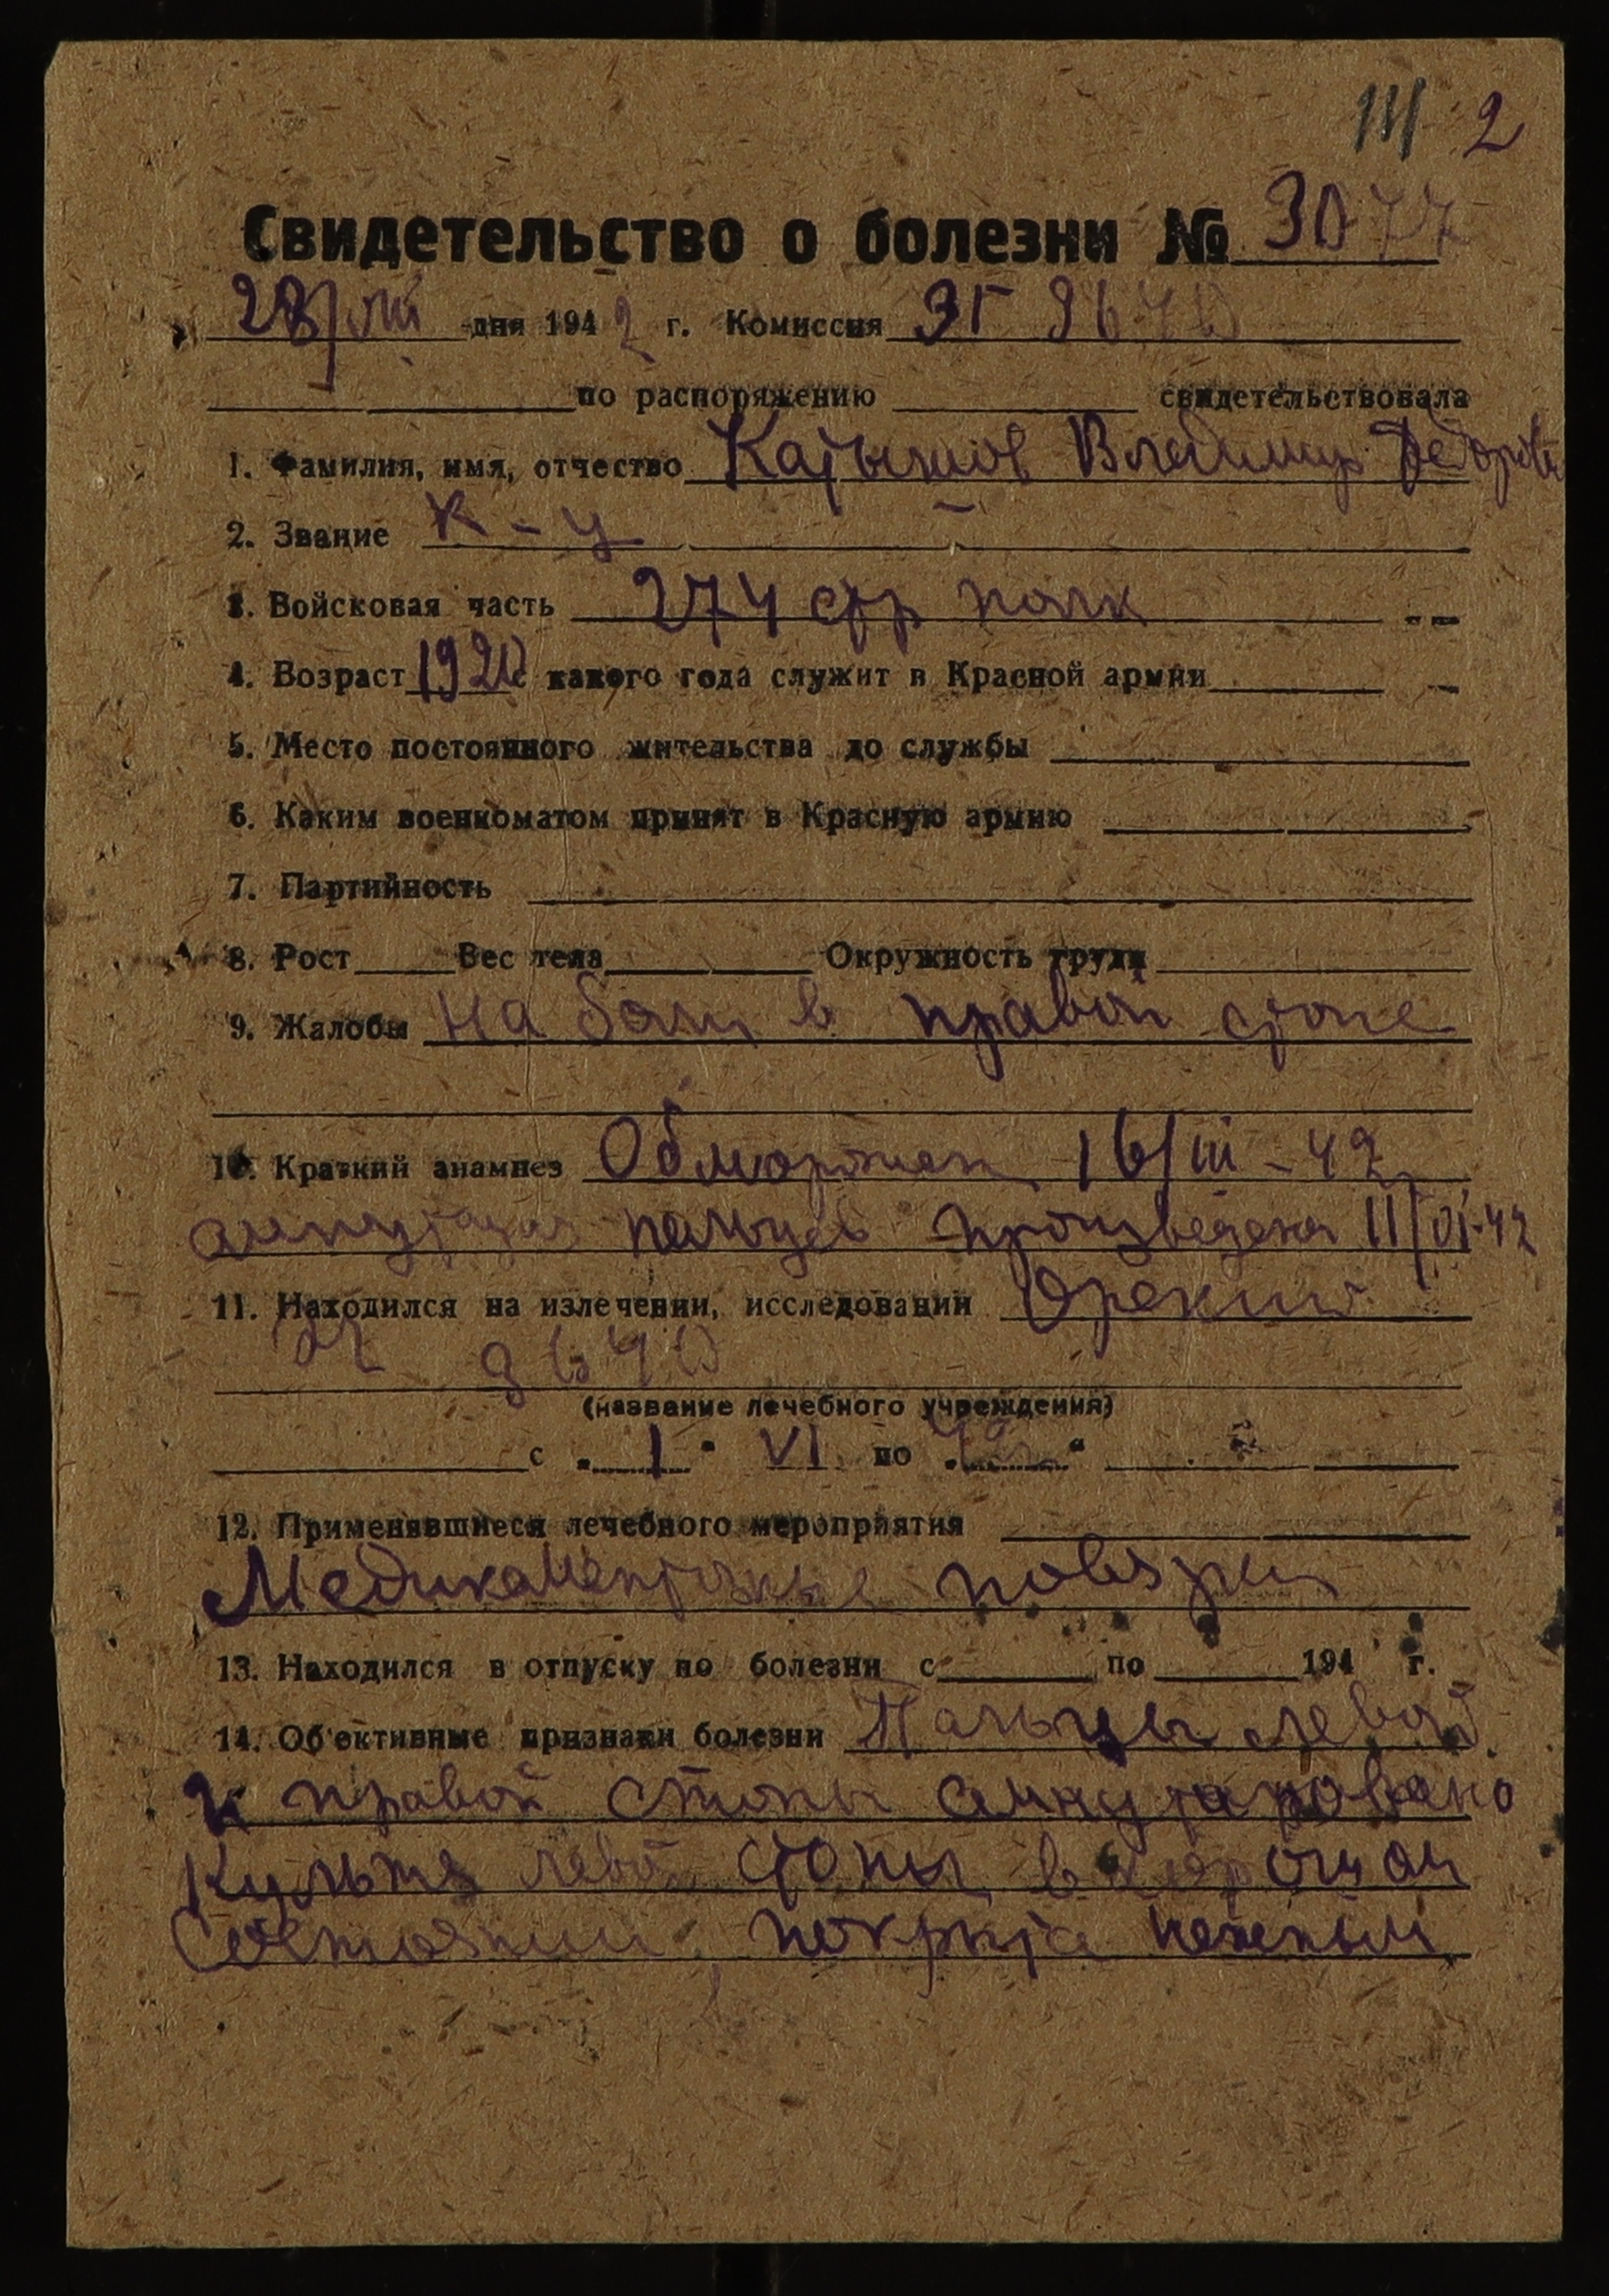 2
Свидетельство о болезни № 3077
28/VIII дня 1942 г. Комиссия ЭГ
по распоряжению свидетельствовала
1. Фамилия, имя, отчество Владимир Федорови
2. Звание к-ц
3. Войсковая часть 274 стр полк
4. Возраст 1920 с какого года служит в Красной армии
5. Место постоянного жительства до службы
6. Каким военкоматом принят в Красную армию
7. Партийность
8. Рост Вес тела Окружность груди
9. Жалобы На боли в правой стопе
10. Краткий анамнез Обморожен 16/III-42
ампутация пальцев произведена 11/VI-42
11. Находился на излечении, исследовании
(название лечебного учреждения)
с „ 1 “ VI по „ “
12. Применявшиеся лечебного мероприятия
Медикаментозные повязки
13. Находился в отпуску по болезни с по 194 г.
14. Об'ективные признаки болезни Пальцы левой
и правой стопы ампутировано
Культя левой стопы в хорошем
Состоянии, покрыта нежным